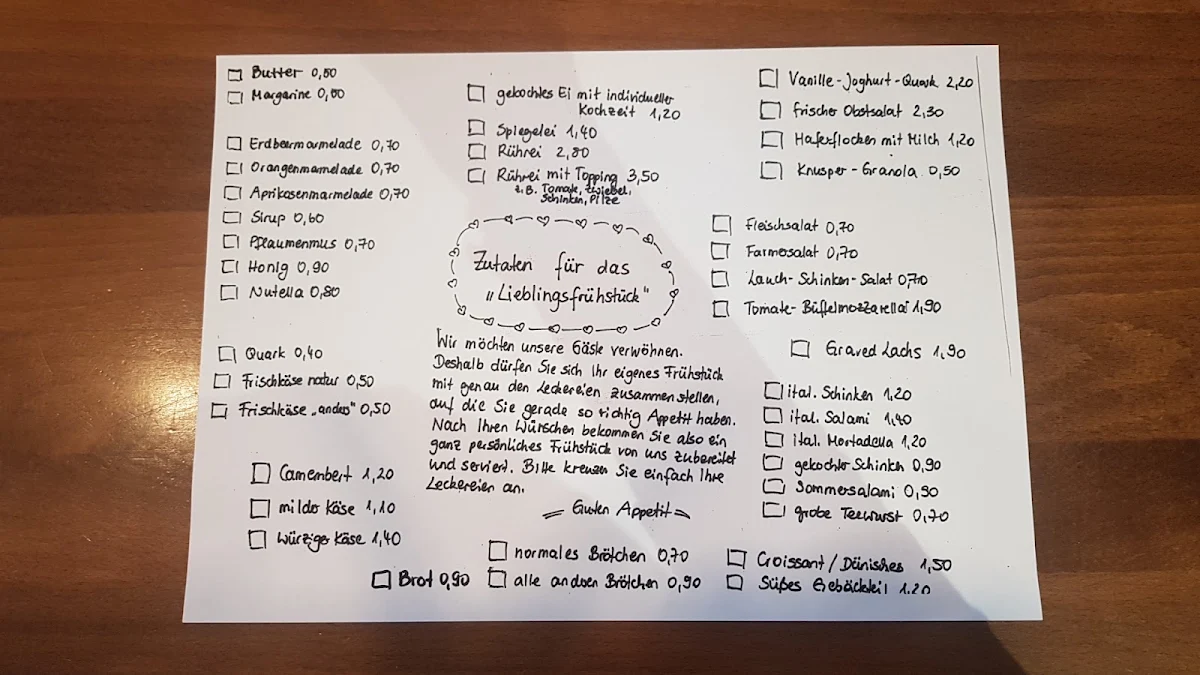 Butter 0,50
Margarine 0,50
Erdbeermarmelade 0,70
Orangenmarmelade 0,70
Aprikosenmarmelade 0,70
Sirup 0,60
Pflaumenmus 0,70
Honig 0,90
Nutella 0,80
Quark 0,40
Frischkäse natur 0,50
Frischkäse „anders" 0,50
Camembert 1,20
milder Käse 1,10
würziger Käse 1,40
Brot 0,90
gekochtes Ei mit individueller
Kochzeit 1,20
Spiegelei 1,40
Rührei 2,80
Rührei mit Topping 3,50
z.B. Tomate, Zwiebel,
Schinken, Pilze
Zutaten für das
„Lieblingsfrühstück"
Wir möchten unsere Gäste verwöhnen.
Deshalb dürfen Sie sich Ihr eigenes Frühstück
mit genau den Leckereien zusammenstellen,
auf die Sie gerade so richtig Appetit haben.
Nach Ihren Wünschen bekommen Sie also ein
ganz persönliches Frühstück von uns zubereitet
und serviert. Bitte kreuzen Sie einfach Ihre
Leckereien an.
Guten Appetit
normales Brötchen 0,70
alle anderen Brötchen 0,90
Vanille-Joghurt-Quark 2,20
frischer Obstsalat 2,30
Haferflocken mit Milch 1,20
Knusper-Granola 0,50
Fleischsalat 0,70
Farmersalat 0,70
Lauch-Schinken-Salat 0,70
Tomate-Büffelmozzarella 1,90
Graved Lachs 1,90
ital. Schinken 1,20
ital. Salami 1,40
ital. Mortadella 1,20
gekochter Schinken 0,90
Sommersalami 0,90
grobe Teewurst 0,70
Croissant/Dänisches 1,50
Süßes Gebäckteil 1,20